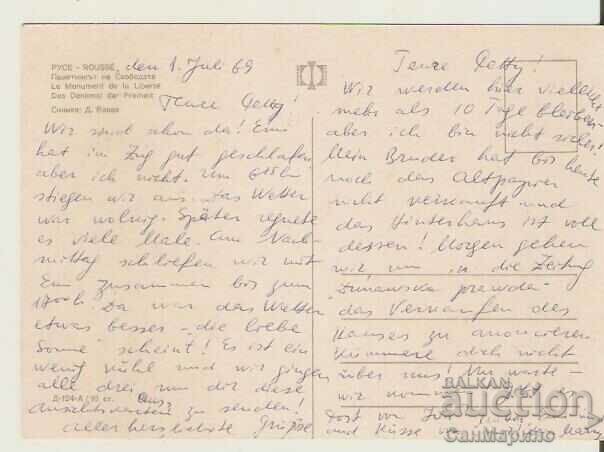 РУСЕ - ROUSSE, den 1. Juli 69
Паметникът на Свободата
Le Monument de la Liberté
Das Denkmal der Freiheit
Снимка: Д.
Teure Detty!
Wir sind schon da! Emi
hat im Zug gut geschlafen
aber ich nicht. Um
stiegen wir aus. Das Wetter
war wolkig. Später regnete
es viele Male. Am Nach-
mittag schliefen wir mit
Emi zusammen bis zum
Da war das Wetter
etwas besser - "die liebe
Sonne" scheint! Es ist ein
wenig kühl und wir gingen
alle drei um dir diese
Ansichtskarten zu senden!
Allerherzlichste Grüsse
Д-124-А / 10 ст.
Teure Detty!
Wir werden hier vielleicht
mehr als 10 Tage bleiben
aber ich bin nicht sicher!
Mein Bruder hat bis heute
noch das Altpapier
nicht verkauft und
das Hinterhaus ist voll
dessen! Morgen gehen
wir, um in die Zeitung
"Dunawska prawda"
das Verkaufen des
Hauses zu
Kümmere dich nicht
über uns! Nur warte -
wir
und Küsse von
BALKAN
auction
СанМарино